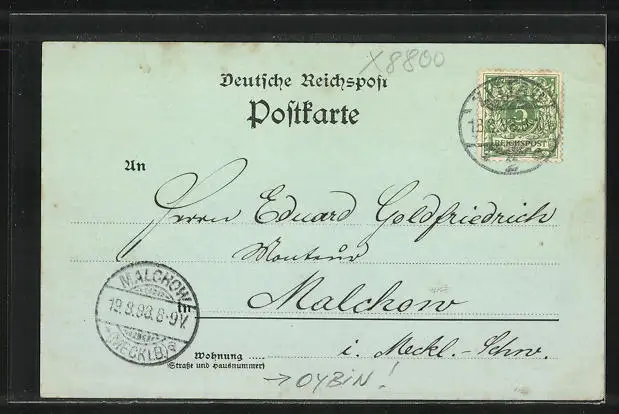 X8800
Deutsche Reichspost
Postkarte
ZITTAU
5
REICHSPOST
An
Herrn Eduard Goldfriedrich
Monteur
Malchow
i. Meckl.-Schw.
MALCHOW
19.8.98.8-9V.
(MECKLB)
Wohnung
(Straße und Hausnummer)
→ OYBIN!